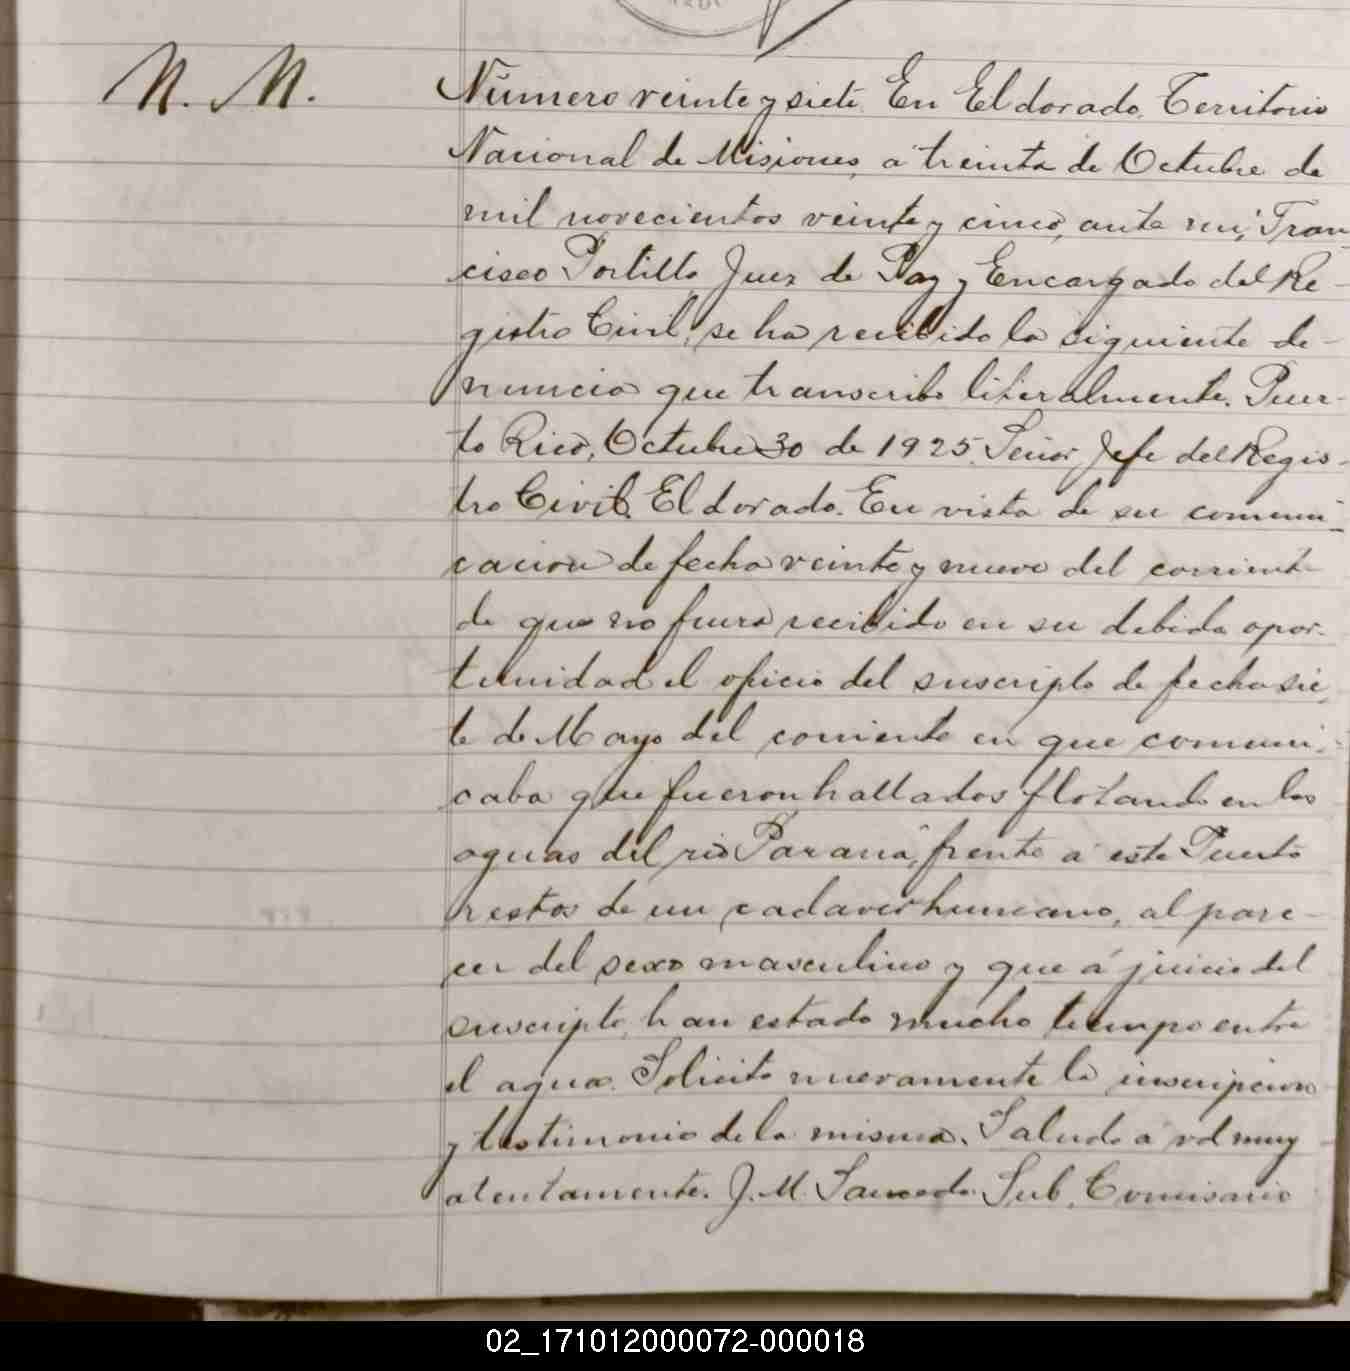 N. N.
Número veinte y siete. En Eldorado, Territorio
Nacional de Misiones, a treinta de Octubre de
mil novecientos veinte y cinco, ante mi, Fran-
cisco Portillo Juez de Paz y Encargado del Re-
gistro Civil, se ha recibido la siguiente de-
nuncia que transcribo literalmente. Puer-
to Rico, Octubre 30 de 1925. Señor Jefe del Regis-
tro Civil. Eldorado. En vista de su comuni-
cacion de fecha veinte y nueve del corriente
de que no fuera recibido en su debida opor-
tunidad el oficio del suscripto de fecha sie-
te de Mayo del corriente en que comuni-
caba que fueron hallados flotando en las
aguas del rio Paraná, frente a este Puerto
restos de un cadaver humano, al pare-
cer del sexo masculino y que á juicio del
suscripto, han estado mucho tiempo entre
el agua. Solicito nuevamente la inscripcion
y testimonio de la misma. Saludo a vd muy
atentamente. J. M. Sub. Comisario
02_171012000072-000018